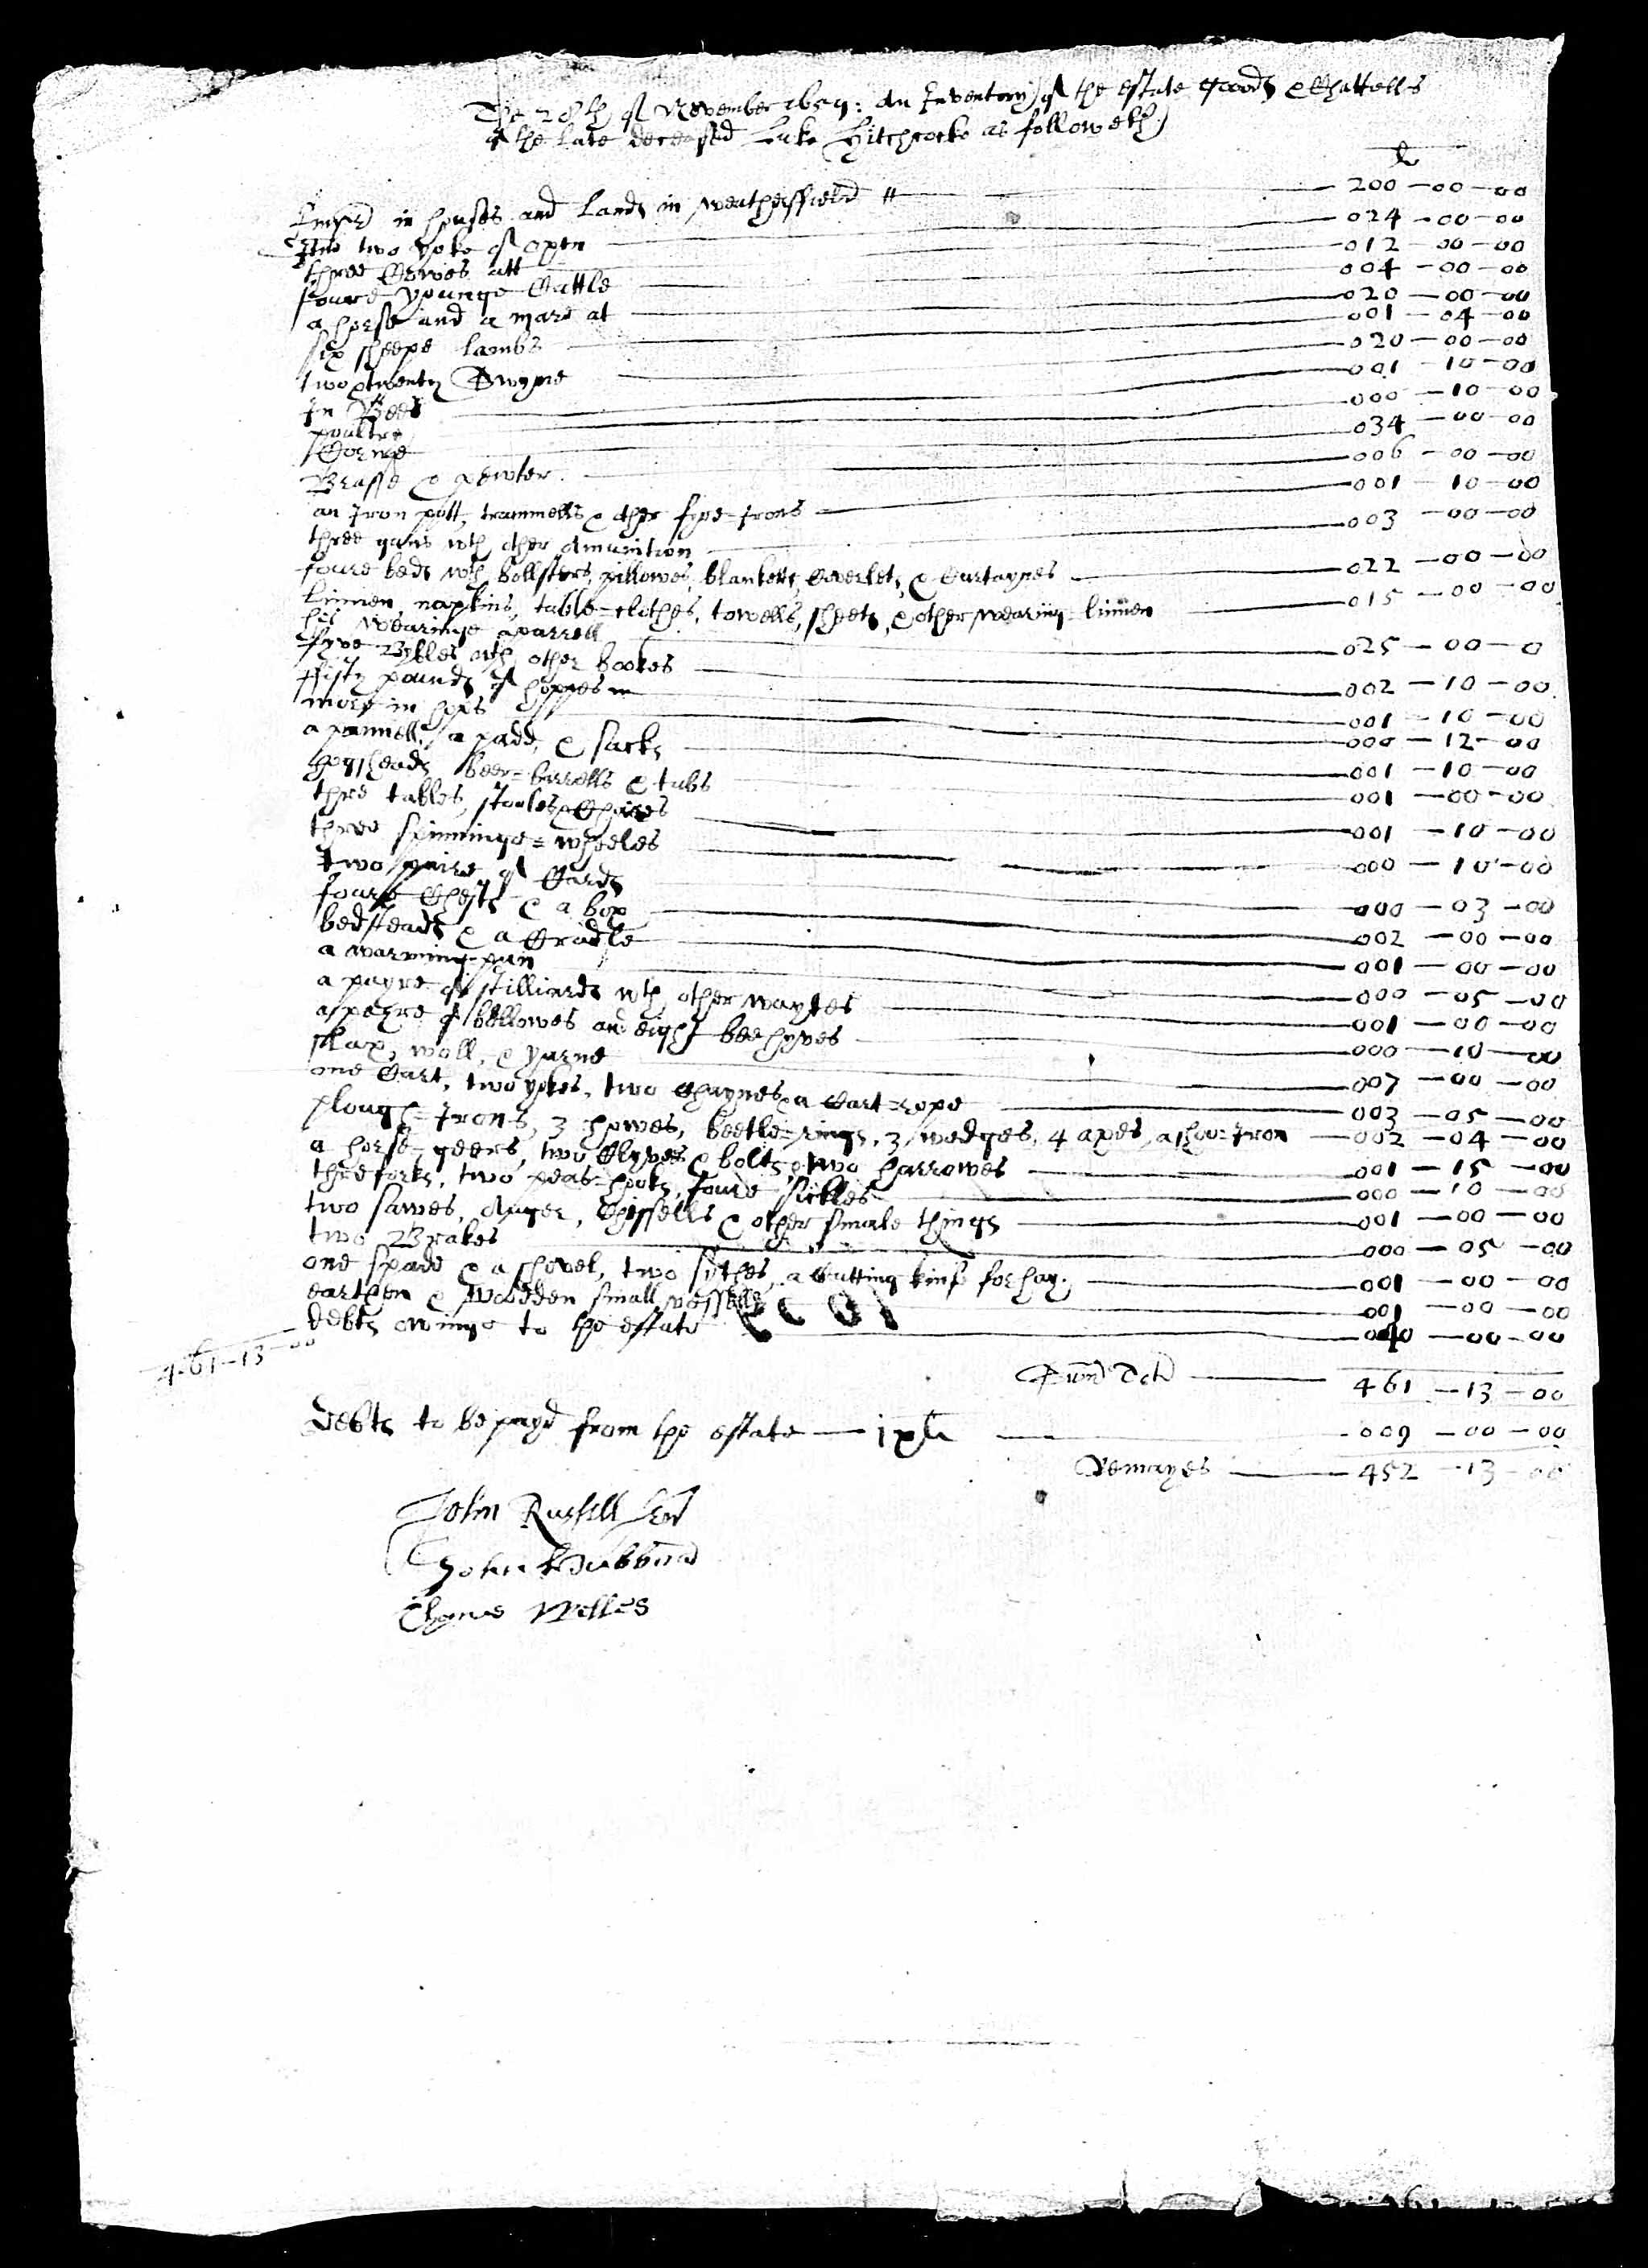 The 28th of November 1659: An Inventory of the Estate goods & Chattells
of the late deceased Luke Hitchcocke as followeth)
li
Impr in houses and Lands in Weathersfield 200-00-00
Itm two yoke of oxen 024-00-00
three Cowes att 012-00-00
foure younge Cattle 004-00-00
a horse and a mare at 020-00-00
six sheepe lambs 001-04-00
two & twenty Swyne 020-00-00
In Bees 001-10-00
poultry 000-10-00
Corne 034-00-00
Brasse & pewter 006-00-00
an Iron pott, trammells & other fyre-Irons 001-10-00
three guns wth other Amunition 003-00-00
foure beds wth bollsters, pillowes, blanketts, Coverlets, & Curtaynes 022-00-00
linnen, napkins, table-clothes, towells, sheets, & other wearing linnen 015-00-00
his wearinge aparrell 025-00-0
fyve Bybles wth other bookes 002-10-00
fifty pounds of hoppes 001-10-00
more in hops 000-12-00
a pannell, a padd, & sacks 001-10-00
hogsheads beer-barrells & tubs 001-00-00
thre tables, stooles & Chaires 001-10-00
three spinninge-wheeles 000-10-00
two paire of Cards 000-03-00
foure Chests & a box 002-00-00
bedsteads & a Cradle 001-00-00
a warming-pan 000-05-00
a payre of stilliards wth other waytes 001-00-00
a payre of bellowes and eight beehyves 000-10-00
flax, woll, & yarne 007-00-00
one Cart, two yokes, two Chaynes & a Cart-rope 003-05-00
plough-Irons, 3 howes, beetle-rings, 3 wedges, 4 axes, a Iron 002-04-00
a horse-geers, two Clyves & bolts, & two harrowes 001-15-00
thre forks, two peas-hooks, foure sickles 000-10-00
two sawes, Auger, Chissells & other smale things 001-00-00
two Brakes 000-05-00
one spade & a shovel, two sithes, a Cutting knife for hay. 001-00-00
earthen & wodden small vessells 001-00-00
debts owinge to the estate 040-00-00
461-13-00
461-13-00
Debts to be payd from the estate — ixli 009-00-00
Remaynes 452-13-00
John Russell Senr
John Hubbard
Thomas Welles